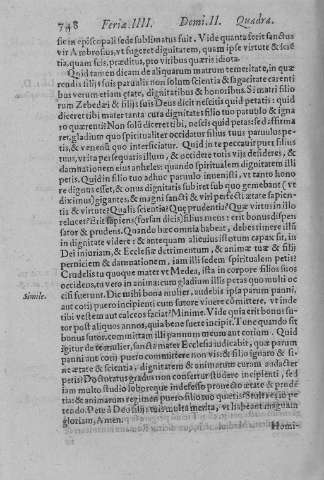 748 Feriæ IIII. Domi. II. Quadra.
sic in episcopali sede sublimatus fuit. Vide quanta fecit sanctus
vir Ambrosius, vt fugeret dignitatem, quam ipse virtute & sciē
tia, quam scis, præditus, pro viribus quæris idiota.
Quid tamen dicam de aliquarum matrum temeritate, in quæ
rendis filijs suis paruulis non solum scientia & sagacitate carenti
bus verum etiam ætate, dignitatibus & honoribus? Si matri filio
rum Zebedæi & filijs suis Deus dicit nescitis quid petatis: quid
diceret tibi mater tanta cura dignitates filio tuo paruulo & igna
ro quærenti? Non solū diceret tibi, nescis quid petas sed affirma
ret, gladium quo spiritualiter occidatur filius tuus paruulus pe-
tis, & venenū quo interficiatur. Quid in te peccauit puer filius
tuus, vt ita persequaris illum, & occidere totis vijs desideres, &
damnationem eius anheles: quando spiritualem dignitatem illi
petis. Quid in filio tuo adhuc paruulo inuenisti, vt tanto hono
re dignus esset, & onus dignitatis subiret sub quo gemebant (ve
diximus) gigantes, & magni sancti & viri perfecti ætate sapien-
tia & virtute? Qualis scientia? Quę prudentia? Quæ virtus in illo
relucet? Erit sapiens (forsan dicis) filius meus: erit bonus dispen
sator & prudens. Quando hæc omnia habeat, debes tinere illū
in dignitate videre: & antequam alicuius istorum capax sit, in
Dei iniuriam, & Ecclesiæ detrimentum, & animæ tuæ & filij
perniciem & damnationem, iam illi sedem spiritualem petis?
Crudelis tu quoque mater vt Medea, ista in corpore filios suos
occidens, tu vero in anima: cum gladium illis petas quo multi oc
Simile. cisi fuerunt. Dic mihi bona mulier, audebis ipsa parum panni,
aut corij puero incipienti cum sutore viuere cōmittere, vt inde
tibi vestem aut calceos faciat? Minime. Vide quia erit bonus su-
tor post aliquos annos, quia bene suere incipit. Tunc quando sit
bonus sutor, committam illi pannum meum aut corium. Quid
igitur de te mulier, sancta mater Ecclesia iudicabit, quæ parum
panni aut corij puero committere non vis: & filio ignaro & si-
ne ætate & scientia, dignitatem & animarum curam audacter
petis? Doctoratus gradus non confertur studere incipienti, sed
iam multo studio laboreque indefesso prouecto ætate & prudē
tia: & animarum regimen puero filio tuo quietis? Stultè ergo pe
tendo. Pete à Deo filijs tuis multa merita, vt habeant magnam
gloriam, Amen.
Homi-